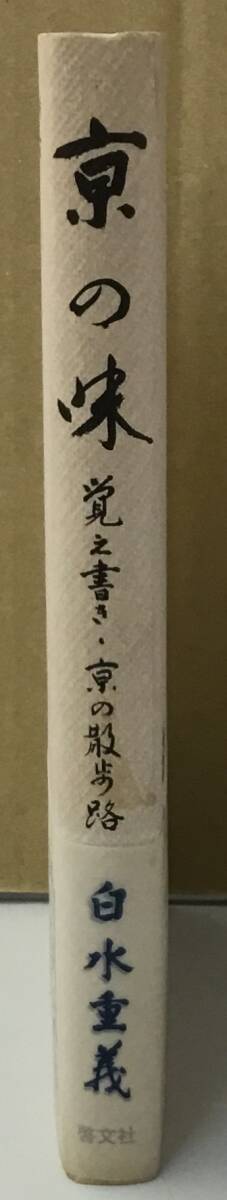 京の味
覚え書き・京の散歩路
白水重義
啓文社